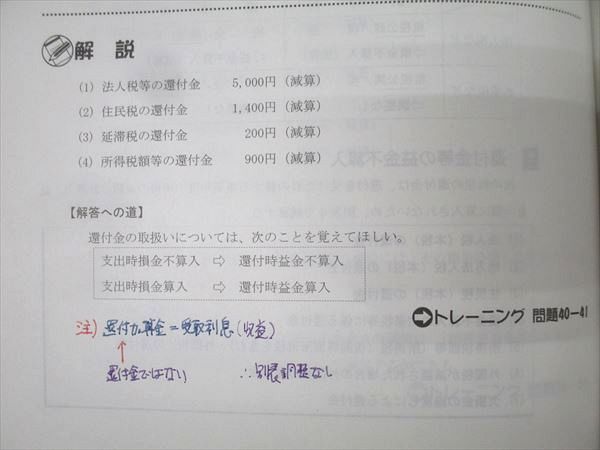 解説
(1) 法人税等の還付金 5,000円（減算）
(2) 住民税の還付金 1,400円（減算）
(3) 延滞税の還付金 200円（減算）
(4) 所得税額等の還付金 900円（減算）
【解答への道】
還付金の取扱いについては、次のことを覚えてほしい。
支出時損金不算入 ⇨ 還付時益金不算入
支出時損金算入 ⇨ 還付時益金算入
トレーニング 問題40-41
注) 還付加算金=受取利息(児童)
↑
還付金ではない ∴別表調整なし